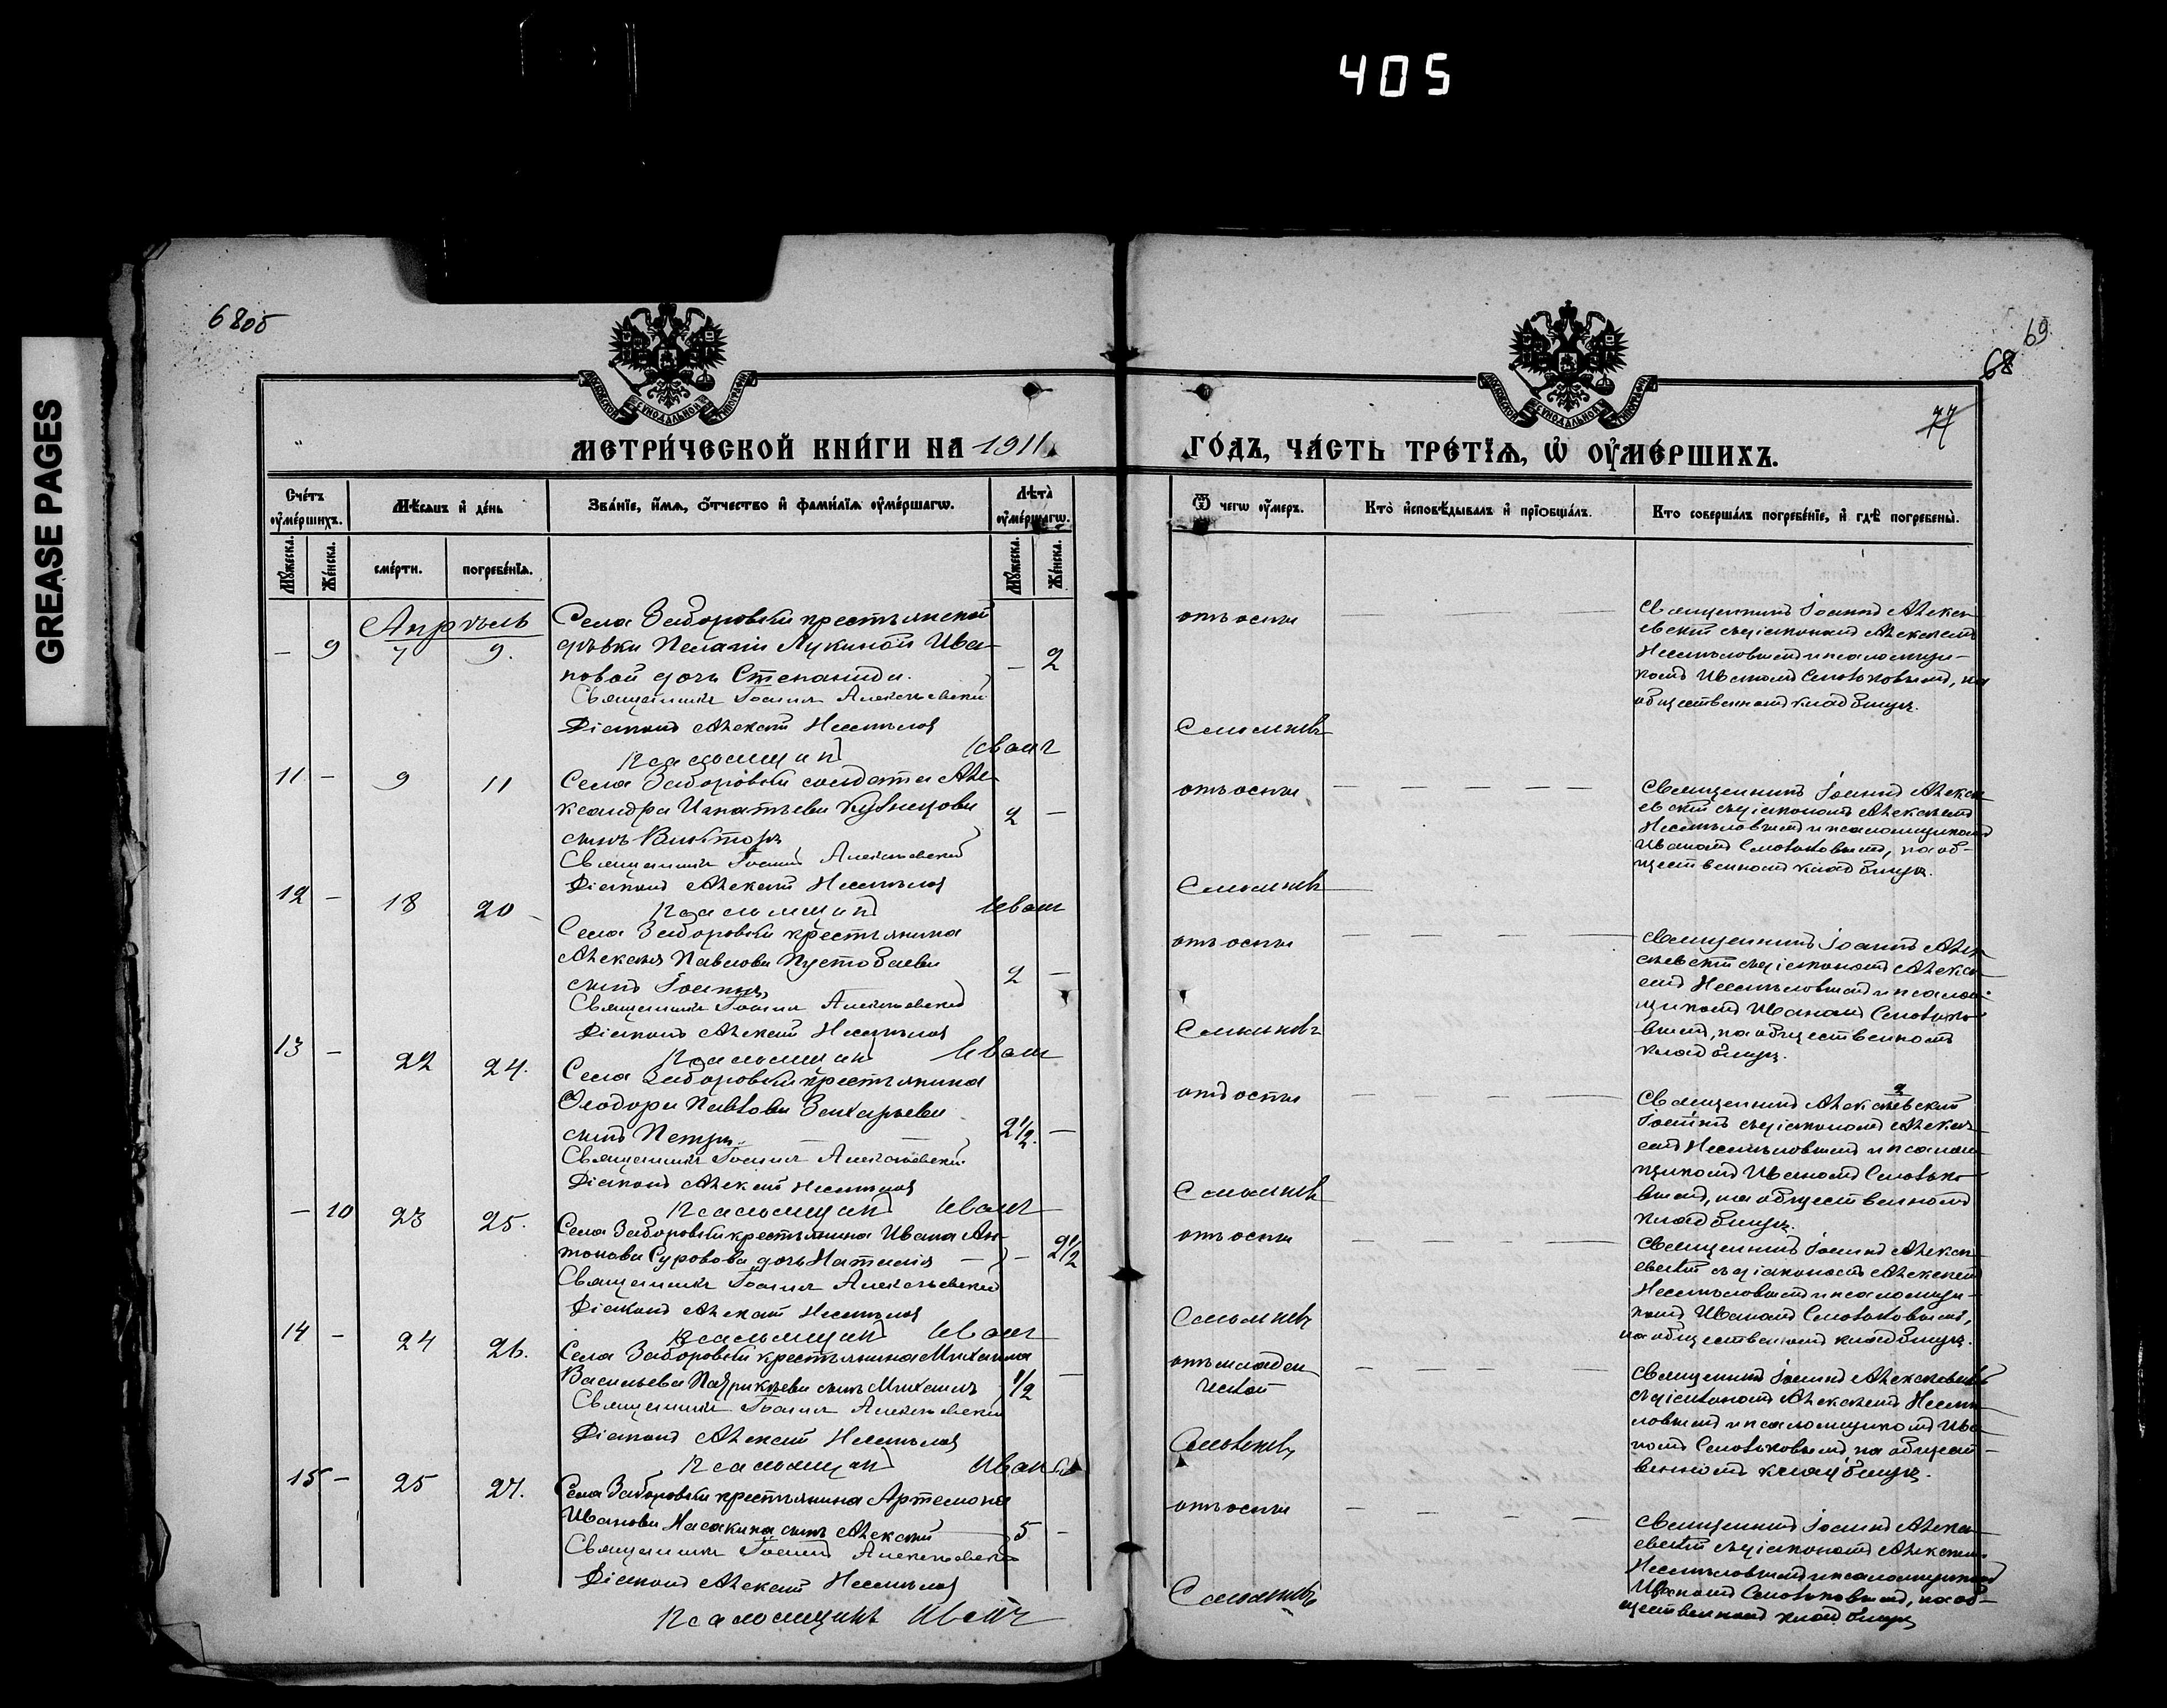 405
GREASE PAGES
68об
69
68
77
МЕТРИ́ЧЕСКОЙ КНИ́ГИ НА 1911
ГО́ДЪ, ЧА́СТЬ ТРЕ́ТІѦ, Ѡ҆ ОУ҆МЕ́РШИХЪ.
Сче́тъ оу҆ме́ршихъ.
Мѣ́сѧцъ и҆ де́нь
Зва́нїе, и҆́мѧ, ѻ҆́тчество и҆ фами́лїѧ оу҆ме́ршагѡ.
Лѣ́та оу҆ме́ршагѡ.
Ѿ чегѡ̀ оу҆́меръ.
Кто̀ и҆сповѣ́дывалъ и҆ прїобща́лъ.
Кто соверша́лъ погребе́нїе, и҆ гдѣ̀ погребены̀.
Мꙋ́жеска.
Же́нска.
сме́рти.
погребе́нїѧ.
Мꙋ́жеска.
Же́нска.
Апрѣль
– 9 7 9.
Села Заборовки крестьянской
дѣвки Пелагіи Лукиной Ива-
новой дочь Степанида.
– 2
отъ оспы
Священникъ Іоаннъ Алексѣевскій
Діаконъ Алексѣй Несмѣловъ
Псаломщикъ Иванъ
Смольковъ
Священникъ Іоаннъ Алексѣ-
евскій съ діакономъ Алексѣемъ
Несмѣловымъ и псаломщи-
комъ Иваномъ Смольковымъ, на
общественномъ кладбищѣ.
11 – 9 11
Села Заборовки солдата Але-
ксандра Игнатьева Кузнецова
сынъ Викторъ
2 –
отъ оспы
Священникъ Іоаннъ Алексѣевскій
Діаконъ Алексѣй Несмѣловъ
Псаломщикъ Иванъ
Смольковъ
Священникъ Іоаннъ Алексѣ-
евскій съ діакономъ Алексѣемъ
Несмѣловымъ и псаломщикомъ
Иваномъ Смольковымъ, на об-
щественномъ кладбищѣ.
12 – 18 20
Села Заборовки крестьянина
Алексѣя Павлова Пустобаева
сынъ Іоаннъ
2 –
отъ оспы
Священникъ Іоаннъ Алексѣевскій
Діаконъ Алексѣй Несмѣловъ
Псаломщикъ Иванъ
Смольковъ
Священникъ Іоаннъ Алек-
сѣевскій съ діакономъ Алексѣ-
емъ Несмѣловымъ и псалом-
щикомъ Иваномъ Смолько-
вымъ, на общественномъ
кладбищѣ.
13 – 22 24.
Села Заборовки крестьянина
Ѳеодора Павлова Захарьева
сынъ Петръ.
2½. –
отъ оспы
Священникъ Іоаннъ Алексѣевскій
Діаконъ Алексѣй Несмѣловъ
Псаломщикъ Иванъ
Смольковъ
Священникъ Алексѣевскій
Іоаннъ съ діакономъ Алексѣ-
емъ Несмѣловымъ и псалом-
щикомъ Иваномъ Смолько-
вымъ, на общественномъ
кладбищѣ.
– 10 23 25.
Села Заборовки крестьянина Ивана Ан-
тонова Суровова дочь Наталія
– 2½
отъ оспы
Священникъ Іоаннъ Алексѣевскій
Діаконъ Алексѣй Несмѣловъ
Псаломщикъ Иванъ
Смольковъ
Священникъ Іоаннъ Алексѣ-
евскій съ діакономъ Алексѣемъ
Несмѣловымъ и псаломщи-
комъ Иваномъ Смольковымъ,
на общественномъ кладбищѣ.
14 – 24 26.
Села Заборовки крестьянина Михаила
Васильева Патрикѣева сынъ Михаилъ
½ –
отъ младен
ческой
Священникъ Іоаннъ Алексѣевскій
Діаконъ Алексѣй Несмѣловъ
Псаломщикъ Иванъ
Смольковъ
Священникъ Іоаннъ Алексѣевскій
съ діакономъ Алексѣемъ Несмѣ-
ловымъ и псаломщикомъ Ива-
номъ Смольковымъ, на общест-
венномъ кладбищѣ.
15 – 25 27.
Села Заборовки крестьянина Артемона
Иванова Насакина сынъ Алексѣй
5 –
отъ оспы
Священникъ Іоаннъ Алексѣевскій
Діаконъ Алексѣй Несмѣловъ
Псаломщикъ Иванъ
Смольковъ
Священникъ Іоаннъ Алексѣ-
евскій съ діакономъ Алексѣемъ
Несмѣловымъ и псаломщикомъ
Иваномъ Смольковымъ, на об-
щественномъ кладбищѣ